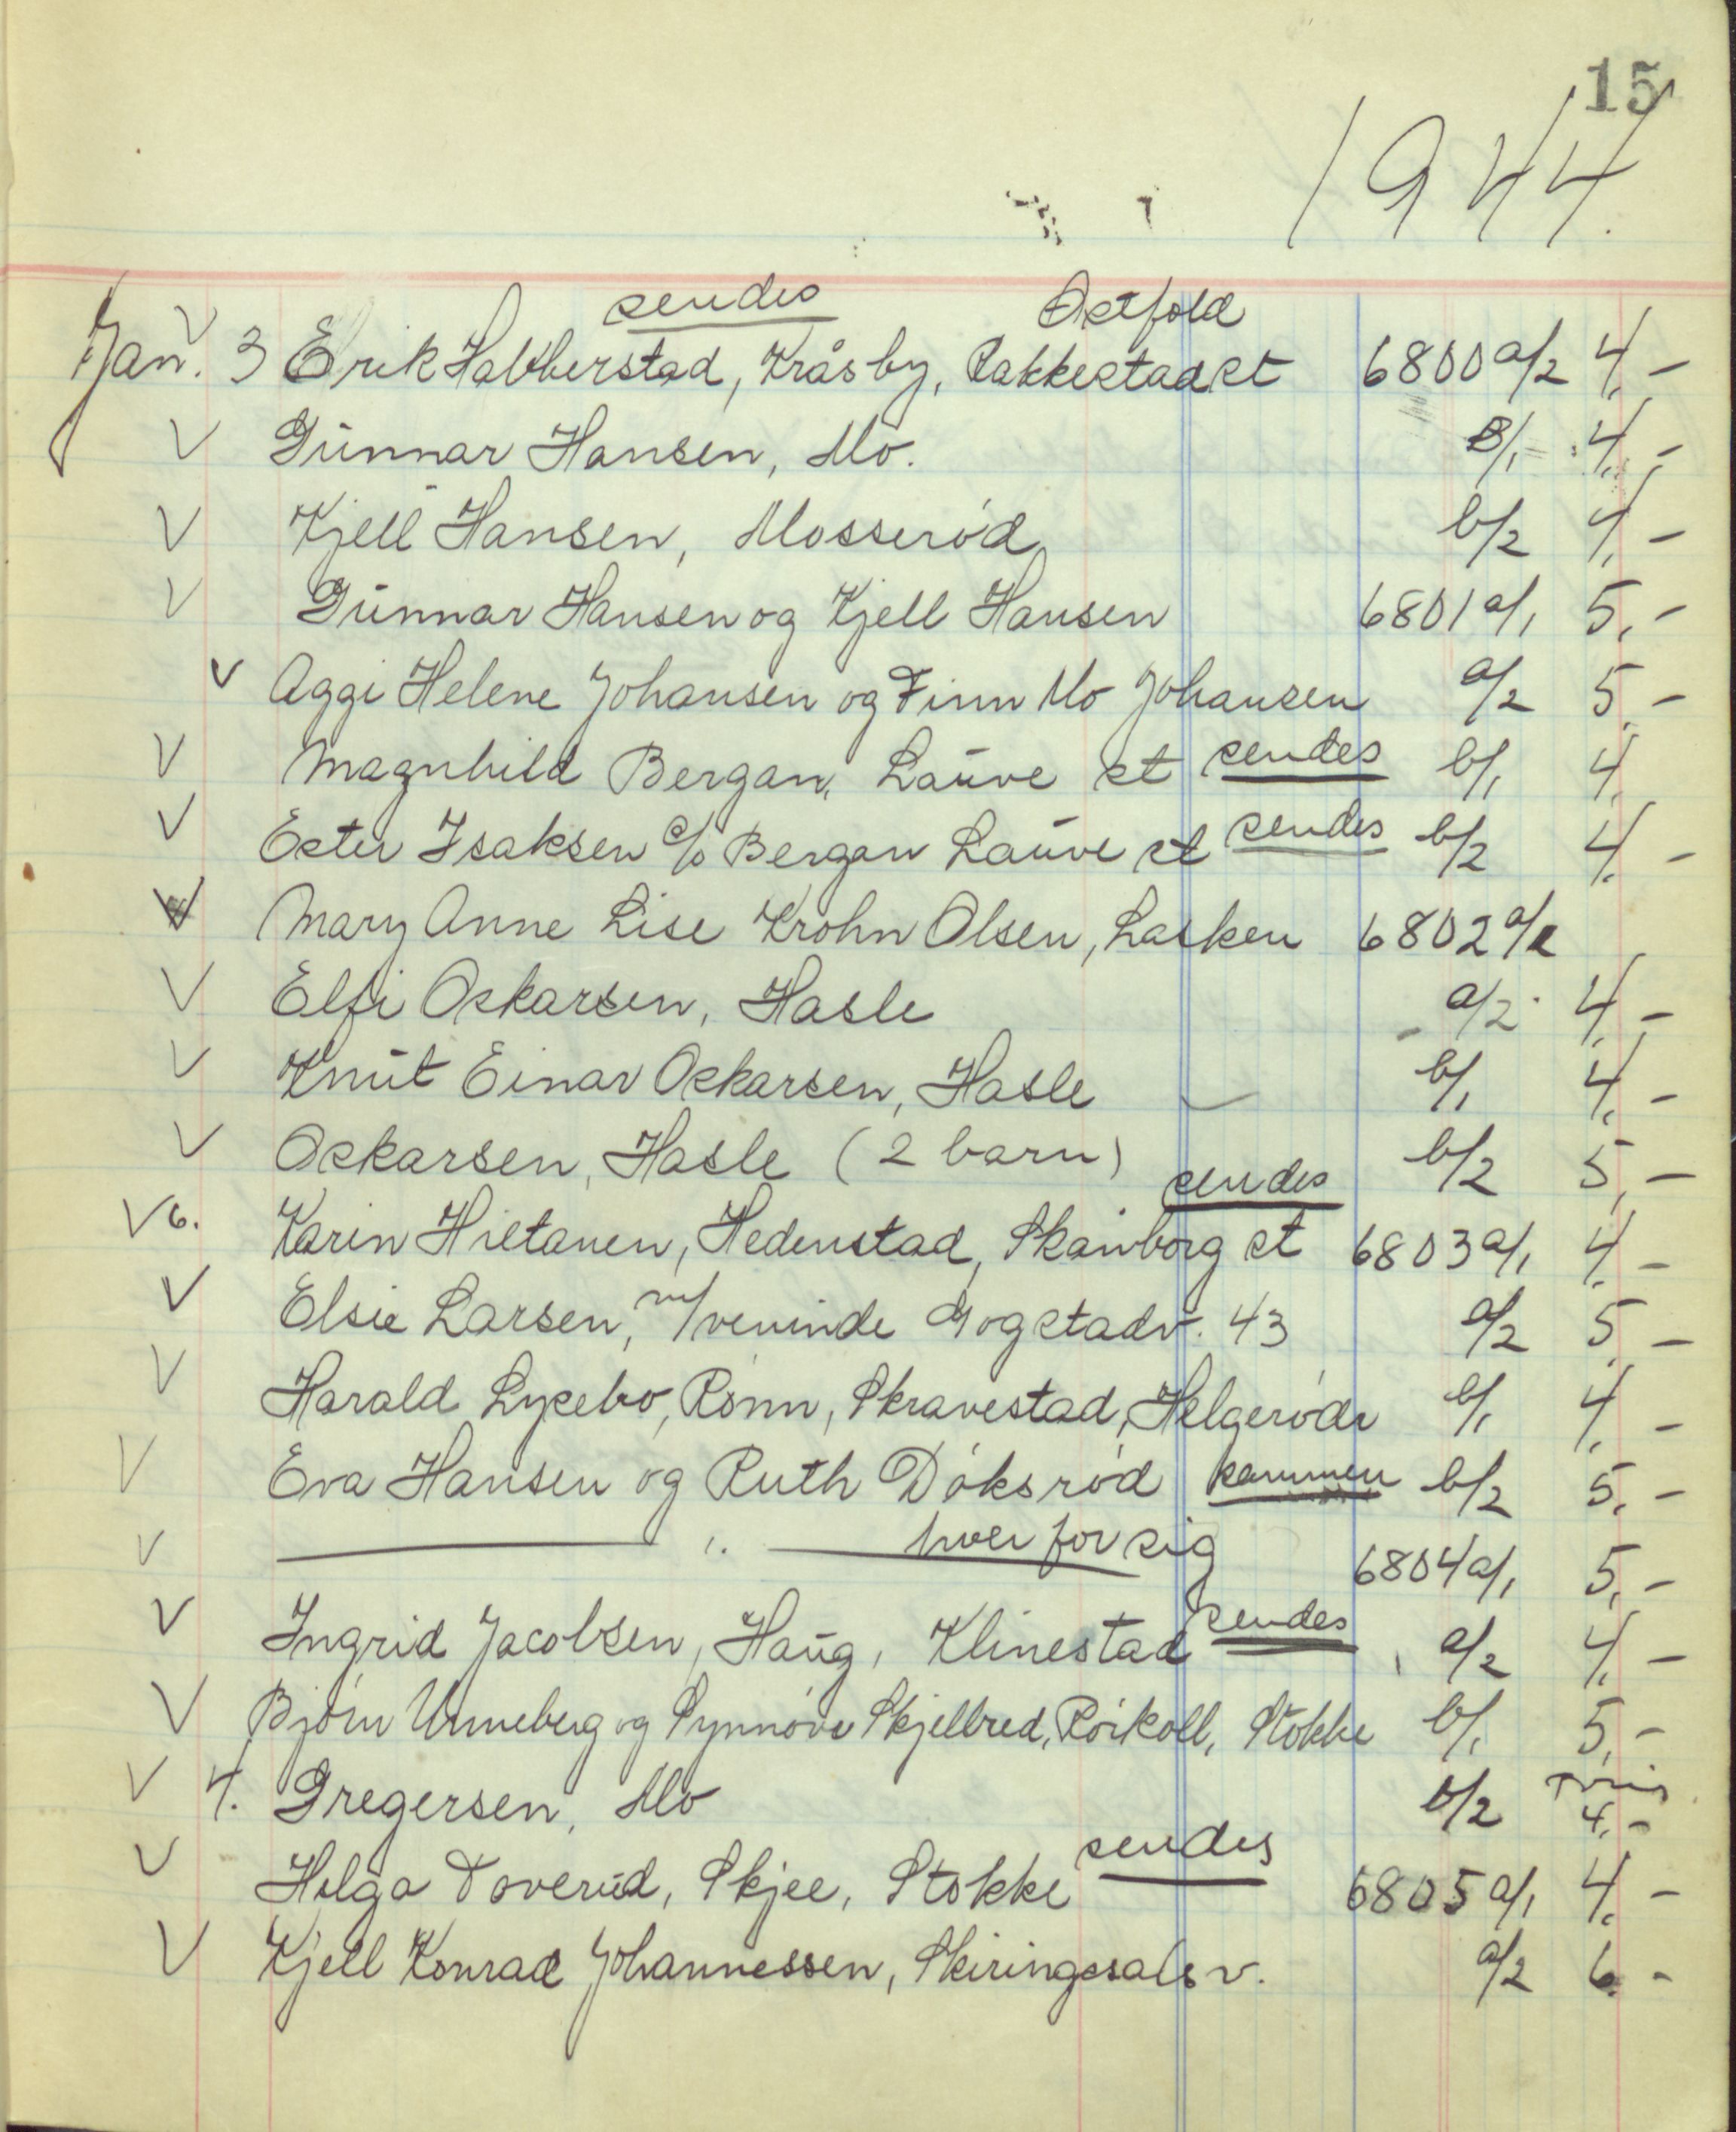 15
1944.
sendes Østfold
Jan. V 3 Erik Halkberstad, Kråsby, Rakkestad st 6800 a/2 4,-
V Gunnar Hansen, Mo. B/1 4,-
V Kjell Hansen, Mosserød b/2 4,-
V Gunnar Hansen og Kjell Hansen 6801 a/1 5,-
V Aggi Helene Johansen og Finn Mo Johansen a/2 5,-
V Magnhild Bergan, Lauve st sendes b/1 4,
V Ester Isaksen c/o Bergan Lauve st sendes b/2 4,-
V Mary Anne Lise Krohn Olsen, Lasken 6802 a/1
V Elfi Oskarsen, Hasle a/2 4,-
V Knut Einar Oskarsen, Hasle b/1 4,-
V Oskarsen, Hasle (2 barn) b/2 5,-
sendes
V 6. Karin Hietanen, Hedenstad, Skauborg st 6803 a/1 4,-
V Elsie Larsen, m/veninde Gogstadv. 43 a/2 5,-
V Harald Lysebo, Rønn, Skravestad, Helgeröde b/1 4,-
V Eva Hansen og Ruth Döksröd sammen b/2 5,-
V — " — hver for sig 6804 a/1 5,-
V Ingrid Jacobsen, Haug, Klinestad sendes a/2 4,-
V Björn Unneberg og Synnöve Skjellred, Röikoll, Stokke b/1 5,-
V 4. Gregersen, Mo b/2 4,-
V Helga Toverud, Skjee, Stokke sendes 6805 a/1 4,-
V Kjell Konrad Johannessen, Skiringssals v. a/2 6,-